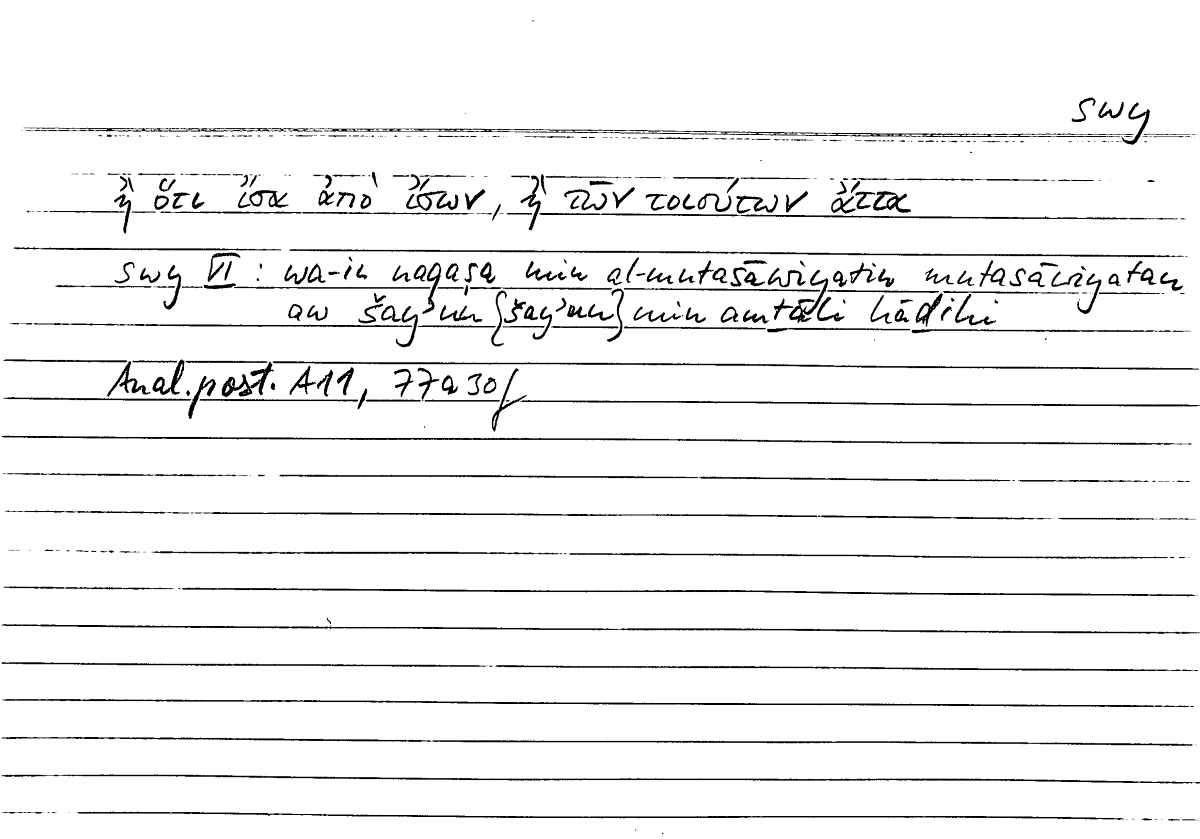 swy
ἢ ὅτι ἴσα ἀπὸ ἴσων, ἢ τῶν τοιούτων ἄττα
swy VI : wa-in naqaṣa min al-mutasāwiyatin mutasāwiyatan
aw šayʾun {šayʾun} min amṯāli hāḏihi
Anal. post. A11, 77a30f